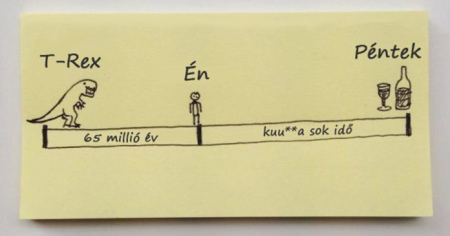 T-Rex
Én
Péntek
65 millió év
kuu**a sok idő